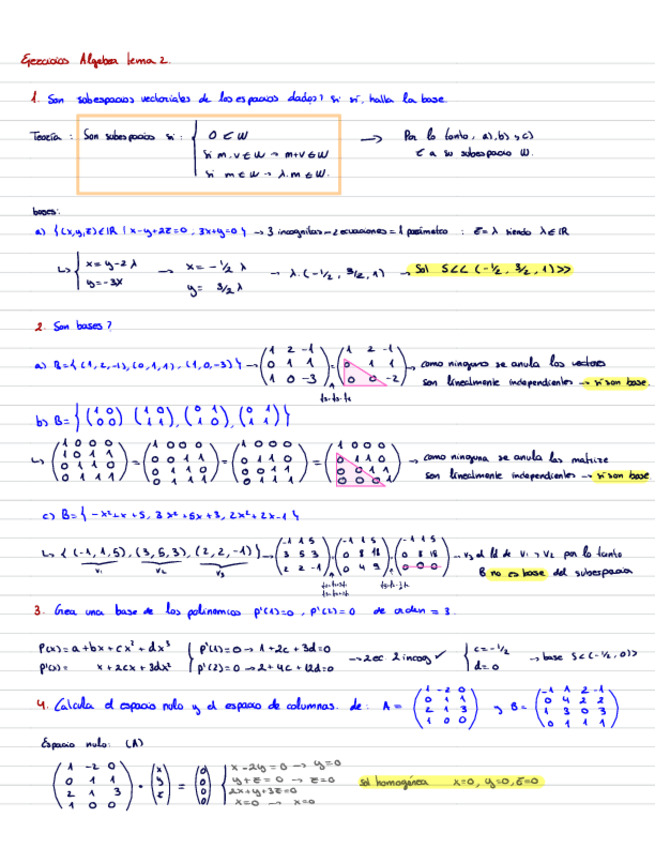 Ejercicios Algebra tema 2.
1. Son subespacios vectoriales de los espacios dados? si sí, halla la base.
Teoría : Son subespacios si : { 0 ⊂ W
si m, v ∈ W → m+v ∈ W
si m ∈ W → λ.m ∈ W.
→ Por lo tanto, a), b) y c)
∈ a su subespacio W.
bases:
a) {(x,y,z) ∈ IR | x-y+2z=0, 3x+y=0} → 3 incognitas - 2 ecuaciones = 1 parámetro : z=λ siendo λ∈IR
↳ { x = y-2λ → x = -1/2 λ → λ.(-1/2, 3/2, 1) → Sol S<< (-1/2, 3/2, 1)>>
y = -3x y = 3/2 λ
2. Son bases?
a) B={(1,2,-1),(0,1,1),(1,0,-3)} → (1 2 -1 / 0 1 1 / 1 0 -3) = (1 2 -1 / 0 1 1 / 0 0 -2) → como ninguno se anula los vectores
son linealmente independientes → si son base.
b) B= {(1 0 / 0 0) (1 0 / 1 1), (0 1 / 1 0), (0 1 / 1 1)}
↳ (1 0 0 0 / 1 0 1 1 / 0 1 1 0 / 0 1 1 1) = (1 0 0 0 / 0 0 1 1 / 0 1 1 0 / 0 1 1 1) = (1 0 0 0 / 0 1 1 0 / 0 0 1 1 / 0 1 1 1) = (1 0 0 0 / 0 1 1 0 / 0 0 1 1 / 0 0 0 1) → como ninguna se anula las matrize
son linealmente independientes → si son base
c) B={ -x²+x+5, 3x²+5x+3, 2x²+2x-1 }
↳ {(-1,1,5), (3,5,3), (2,2,-1)} → (-1 1 5 / 3 5 3 / 2 2 -1) = (-1 1 5 / 0 8 18 / 0 4 9) = (-1 1 5 / 0 8 18 / 0 0 0) → v3 el ld de v1 y v2 por lo tanto
v1 v2 v3
B no es base del subespacio
3. Crea una base de los polinomios p'(1)=0, p'(2)=0 de orden = 3.
P(x) = a+bx+cx²+dx³ { p'(1)=0 → 1+2c+3d=0 → 2ec 2incog ✓ { c=-1/2 → base S<(-1/2, 0)>
p'(x)= x+2cx+3dx² p'(2)=0 → 2+4c+12d=0 d=0
4. Calcula el espacio nulo y el espacio de columnas de: A = (1 -2 0 / 0 1 1 / 2 1 3 / 1 0 0) y B = (-1 1 2 -1 / 0 4 2 2 / 1 3 0 3 / 0 1 1 1)
Espacio nulo: (A)
(1 -2 0 / 0 1 1 / 2 1 3 / 1 0 0) · (x / y / z) = (0 / 0 / 0 / 0) { x-2y=0 → y=0
y+z=0 → z=0
2x+y+3z=0
x=0 → x=0
sol homogénea x=0, y=0, z=0